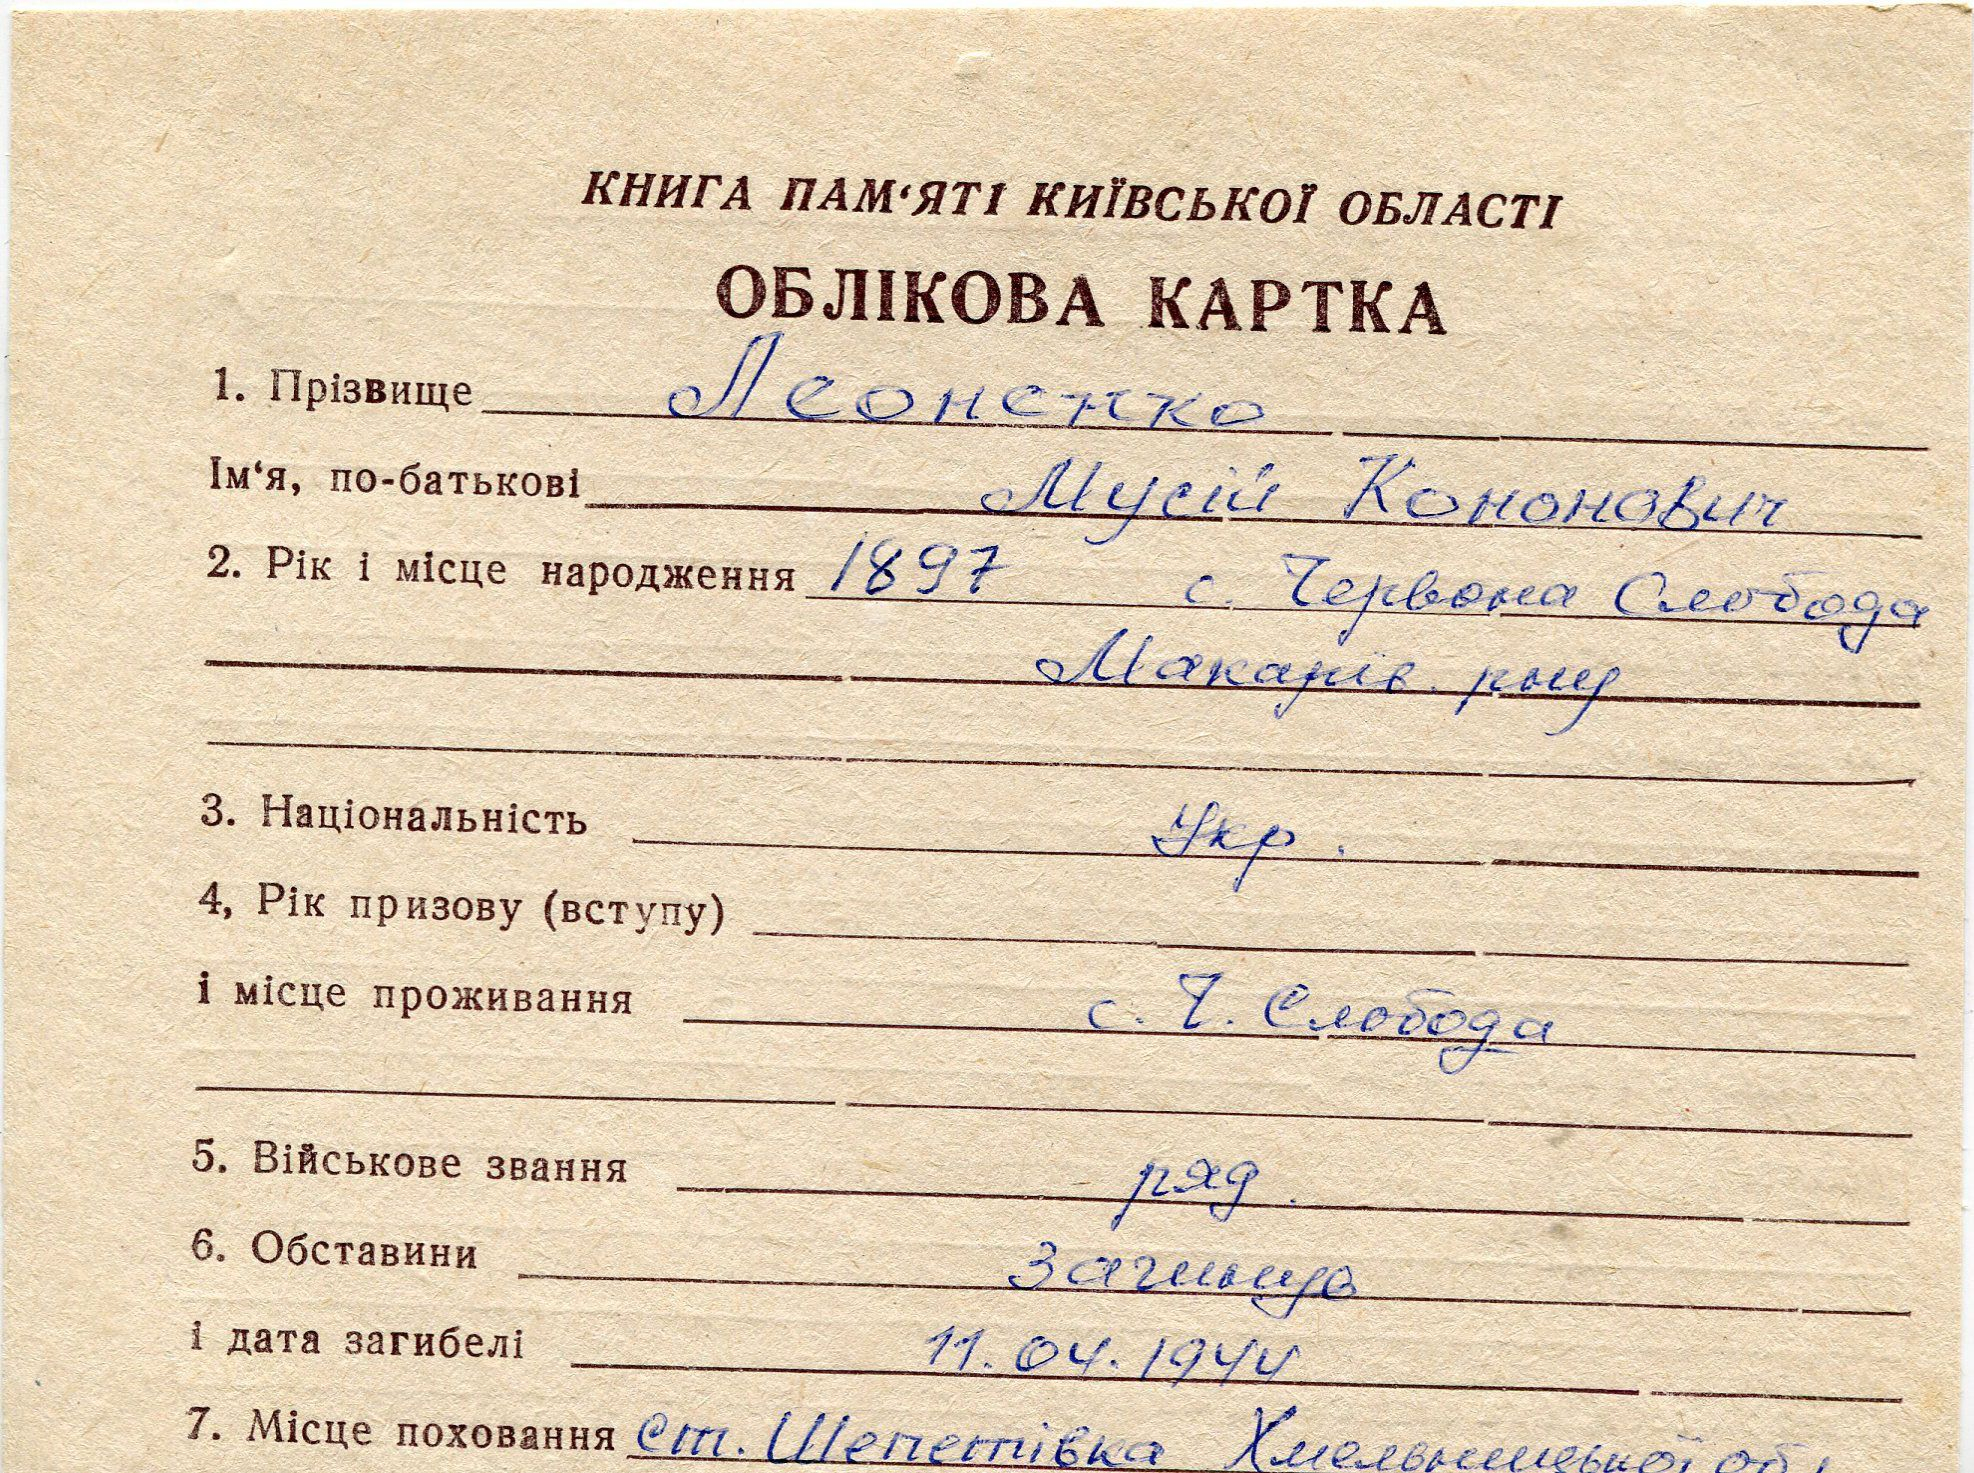 КНИГА ПАМ‘ЯТІ КИЇВСЬКОЇ ОБЛАСТІ
ОБЛІКОВА КАРТКА
1. Прізвище Леоненко
Ім‘я, по-батькові Мусій Кононович
2. Рік і місце народження 1897 с. Червона Слобода
Макарів.
3. Національність Укр.
4, Рік призову (вступу)
і місце проживання с. Ч. Слобода
5. Військове звання ряд.
6. Обставини
і дата загибелі 11.04.1944
7. Місце поховання ст. Шепетівка Хмельницької об